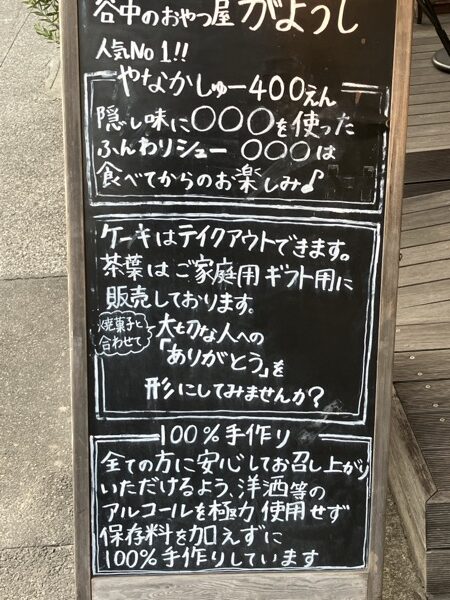 谷中のおやつ屋 がようし
人気No1!!
やなかしゅー400えん
隠し味に○○○を使った
ふんわりシュー ○○○は
食べてからのお楽しみ♪
ケーキはテイクアウトできます。
茶葉はご家庭用ギフト用に
販売しております。
焼菓子と
合わせて
大切な人への
「ありがとう」を
形にしてみませんか?
100%手作り
全ての方に安心してお召し上がり
いただけるよう、洋酒等の
アルコールを極力使用せず
保存料を加えずに
100%手作りしています